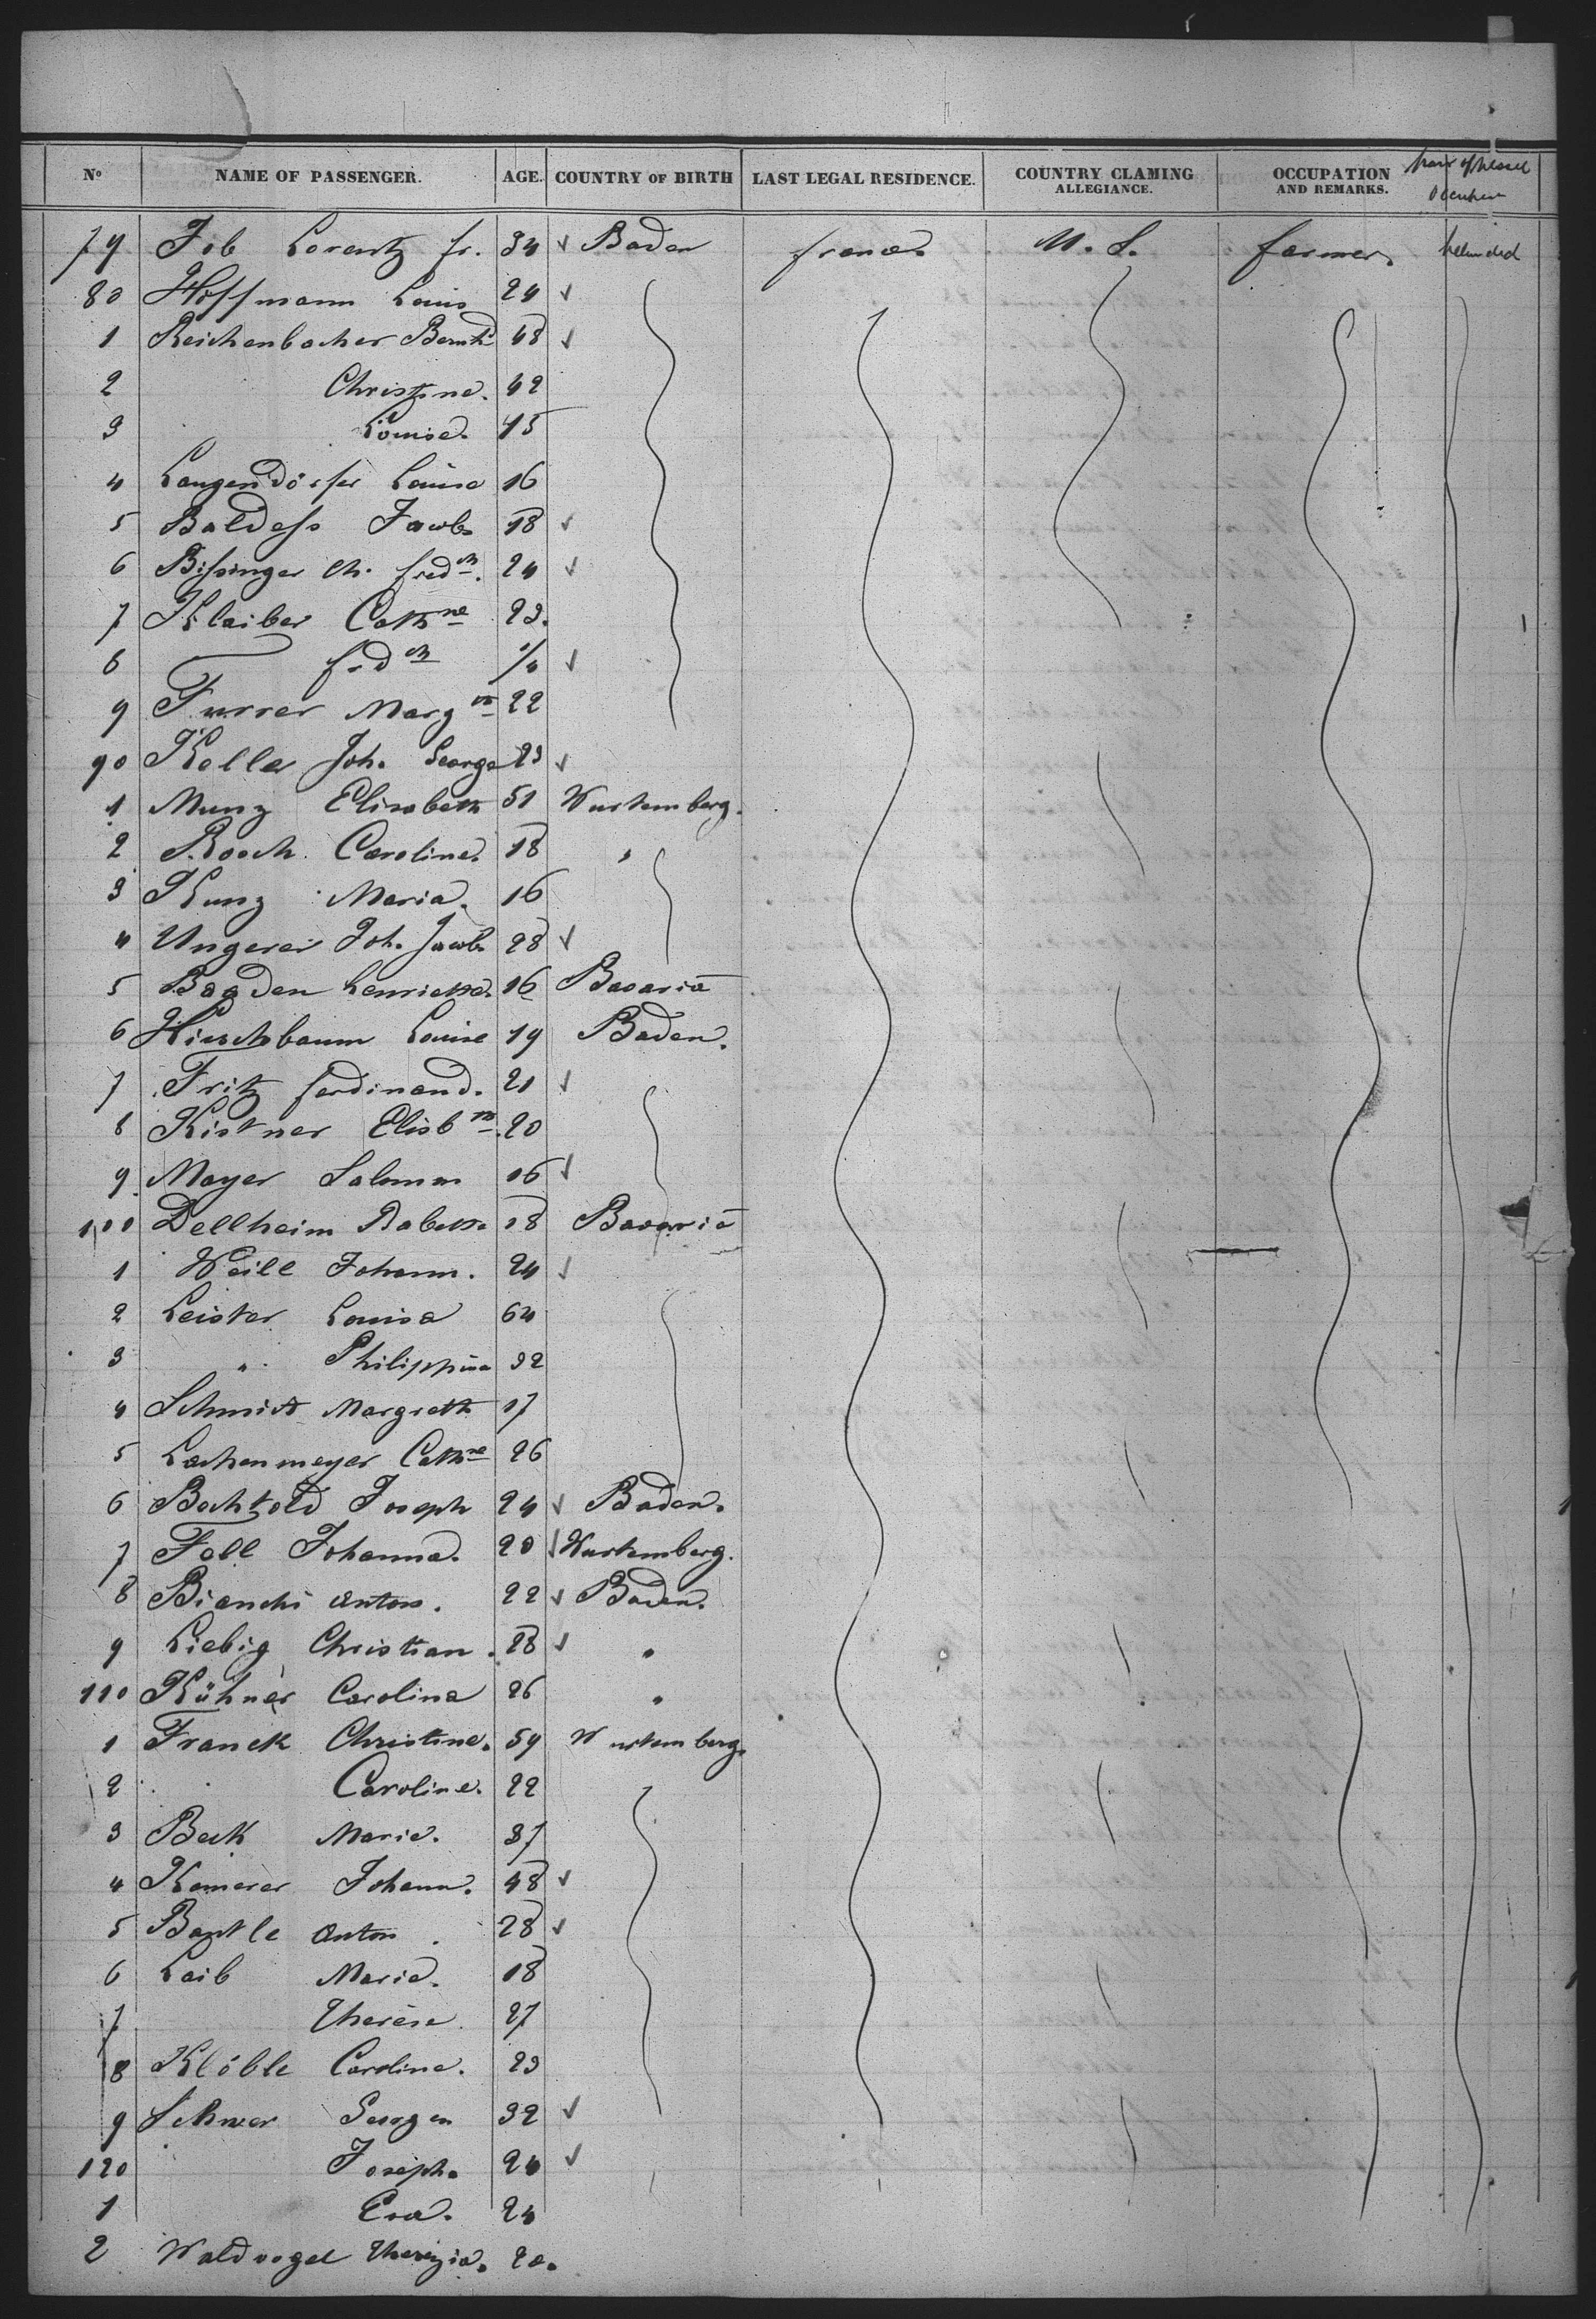 No NAME OF PASSENGER. AGE. COUNTRY OF BIRTH LAST LEGAL RESIDENCE. COUNTRY CLAMING ALLEGIANCE. OCCUPATION AND REMARKS. of vessel
79 Job Lorentz fr. 34 Baden france. U. S. farmer.
80 Hoffmann Louis 24
1 Reichenbacher Bernh 48
2 Christine. 42
3 Louise. 15
4 Langendörfer Louise 16
5 Baldess Jacob 18
6 Bissinger Ch. fredch. 24
7 Klaiber Cathne 23.
8 fredch 1/4
9 Furrer Margth 22
90 Keller Joh. George 23
1 Munz Elisabeth 51 Wurtemberg.
2 Rooch Caroline. 18 "
3 Kunz Maria. 16
4 Ungerer Joh. Jacob 28
5 Bagden henriette. 16 Bavaria
6 Hirschbaum Louise 19 Baden.
7 Fritz ferdinand. 21
8 Kistner Elisbth. 20
9 Mayer Salomon 16
100 Dellheim Babette 18 Bavaria
1 Weill Johann. 24
2 Leister Louisa 64
3 " Philippina 32
4 Schmidt Margreth 17
5 Lachenmeyer Cathne 26
6 Bechtold Joseph 24 Baden.
7 Fell Johanna. 20 Wurtemberg.
8 Bianchi Anton. 22 Baden.
9 Liebig Christian. 28 "
110 Kühner Carolina 26 "
1 Franck Christine. 59 Wurtemberg.
2 Caroline. 22
3 Beck Marie. 37
4 Kamerer Johann. 48
5 Bantle Anton. 28
6 Laib Maria. 18
7 Therèse. 27
8 Klöble Caroline. 23
9 Schwer Georgen 32
120 Joseph. 24
1 Eva. 24
2 Waldvogel Therezia. 20.